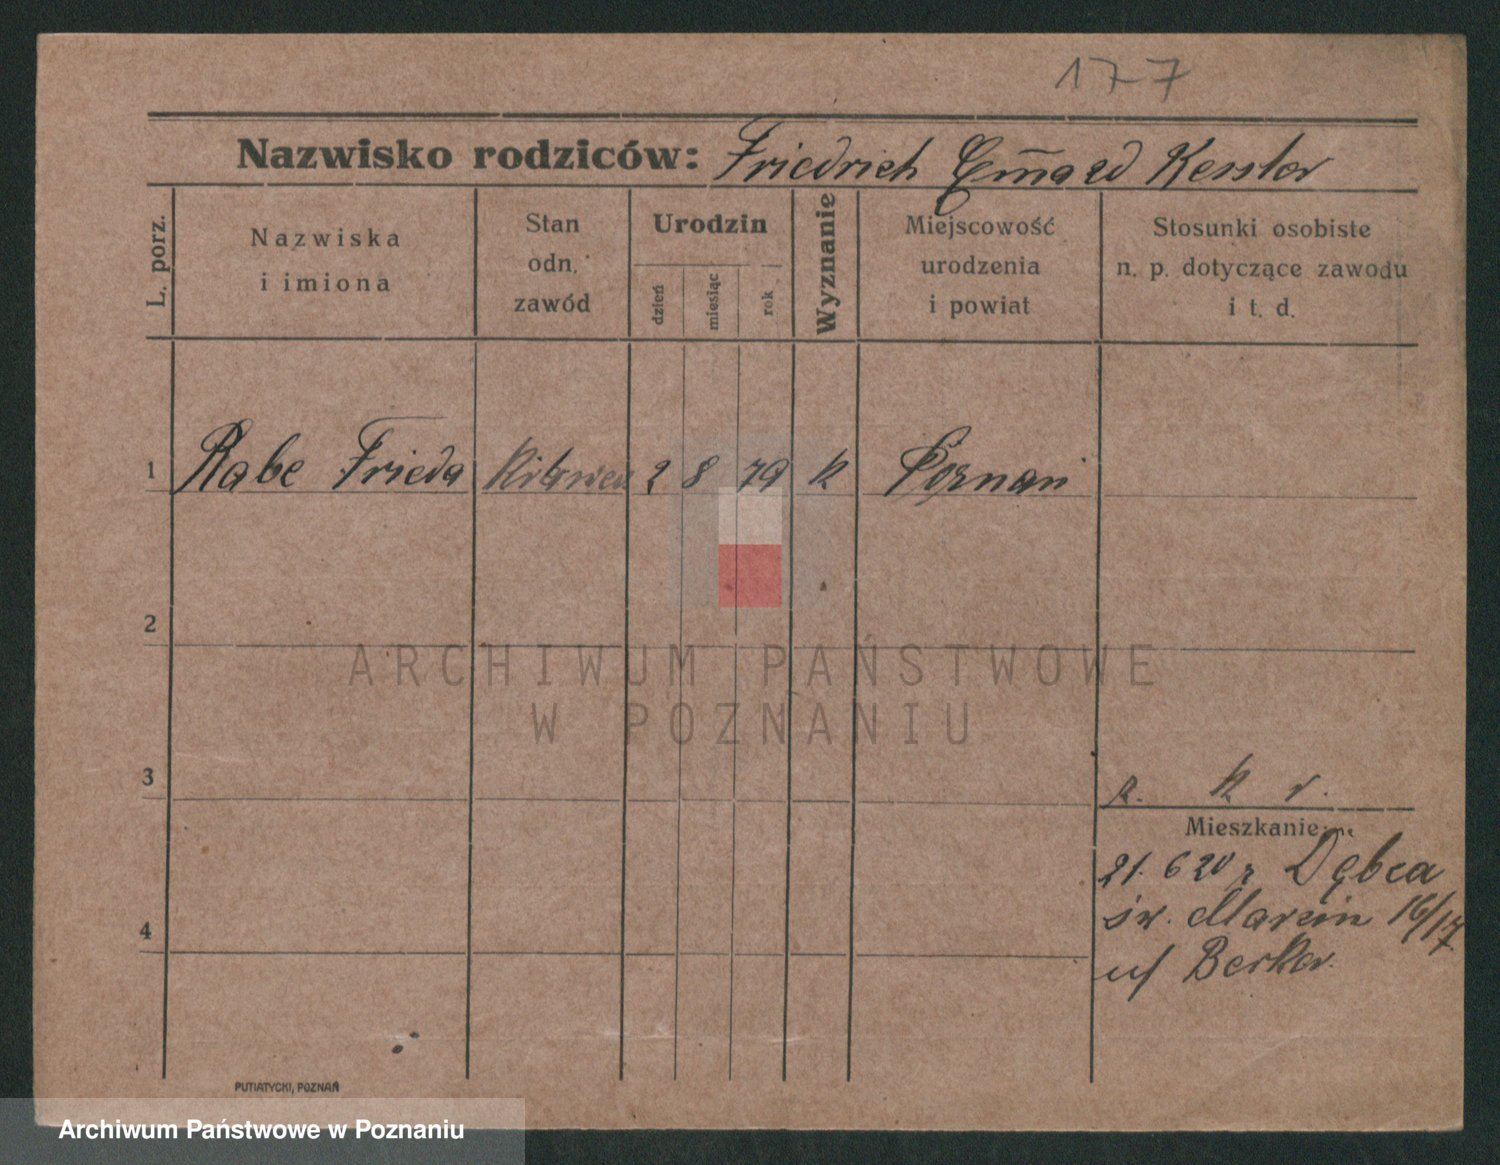 177
Nazwisko rodziców: Friedrich Kessler
L. porz.
Nazwiska
i imiona
Stan
odn.
zawód
Urodzin
dzień
miesiąc
rok
Wyznanie
Miejscowość
urodzenia
i powiat
Stosunki osobiste
n. p. dotyczące zawodu
i t. d.
1 Rabe Frieda 2 8 79 k Poznań
2
ARCHIWUM PAŃSTWOWE
W POZNANIU
3
k. k r.
Mieszkanie:
21. 6 20 z Dębca
św. Marcin 16/17
u/ Berker.
4
PUTIATYCKI, POZNAŃ
Archiwum Państwowe w Poznaniu